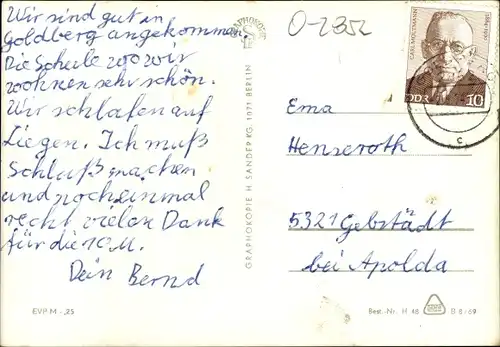 Wir sind gut in
Goldberg angekommen.
Die Schule wo wir
wohnen sehr schön.
Wir schlafen auf
Liegen. Ich muß
Schluß machen
und noch einmal
recht vielen Dank
für die 10 M.
Dein Bernd
EVP M -,25
GRAPHOKOPIE H. SANDER KG, 1071 BERLIN
GRAPHOKOPIE
O-2352
CARL MOLTMANN
1884-1960
DDR 10
c
Erna
Henseroth
5321 Gebstädt
bei Apolda
Best.-Nr. H 46
B 8/69